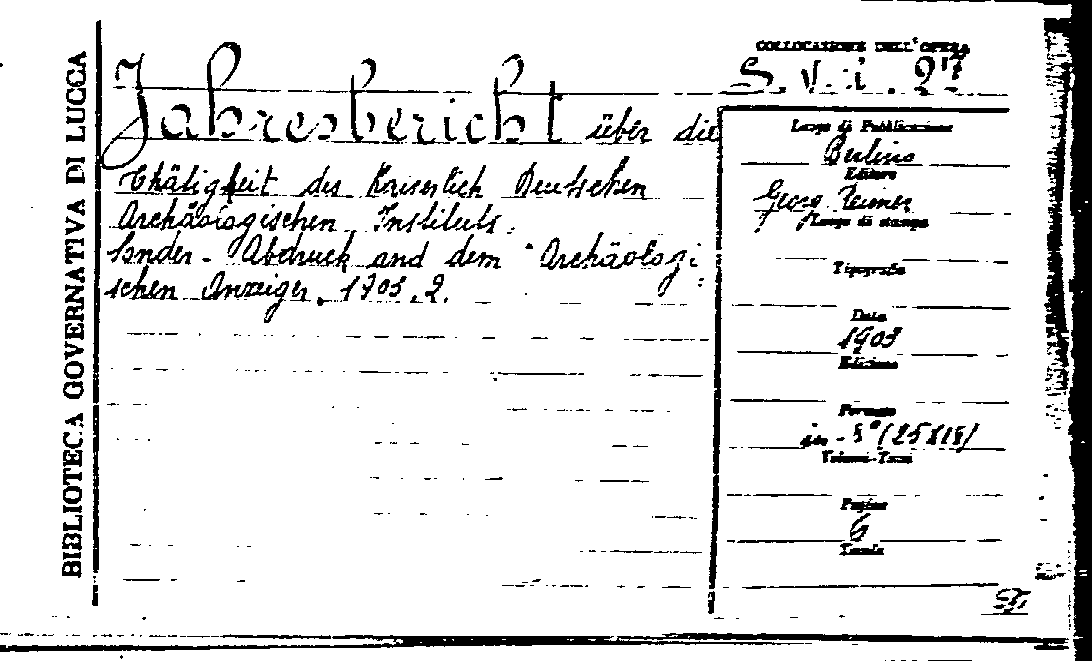 BIBLIOTECA GOVERNATIVA DI LUCCA
COLLOCAZIONE DELL'OPERA
S. V. i. 27
Jahresbericht über die
Thätigkeit des Kaiserlich Deutschen
Archäologischen Instituts.
Sonder-Abdruck and dem "Archäologi
schen Anzeiger. 1903, 2.
Luogo di Pubblicazione
Berlino
Editore
Georg Reimer
Luogo di stampa
Tipografia
Data
1903
Edizione
Formato
in-8° (25X18)
Volumi-Tomi
Pagine
6
Tavole